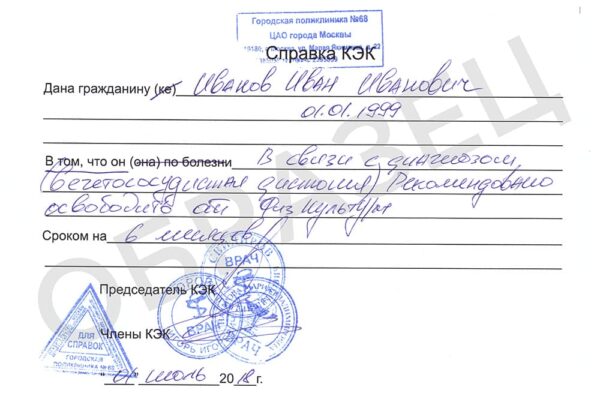 Городская поликлиника №68
ЦАО города Москвы
Справка КЭК
Дана гражданину (ке) Иванов Иван Иванович
01.01.1999
В том, что он (она) по болезни В связи с диагнозом
(вегетососудистая дистония) Рекомендовано
освободить от физкультуры
Сроком на 6 месяцев
ОБРАЗЕЦ
Председатель КЭК
ВРАЧ
Члены КЭК
ВРАЧ
ВРАЧ
ДЛЯ
СПРАВОК
ГОРОДСКАЯ
ПОЛИКЛИНИКА №68
июль 2018г.